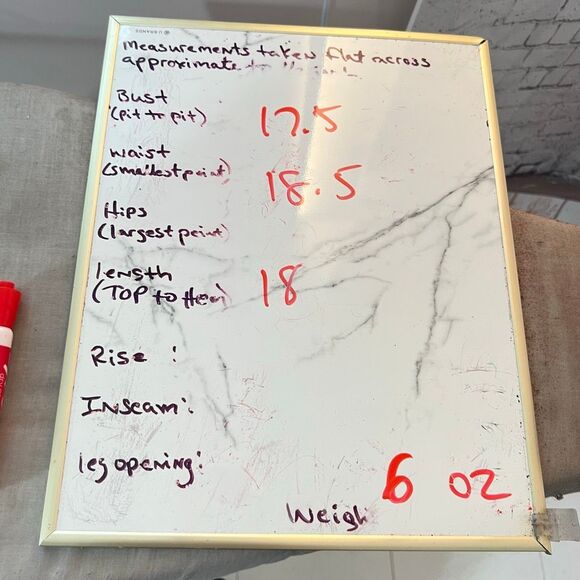 U BRANDS
Measurements taken flat across
approximate
Bust
(pit to pit) 17.5
waist
(smallest point) 18.5
Hips
(largest point)
length
(TOP to Hem) 18
Rise :
Inseam:
leg opening:
6 oz
Weigh